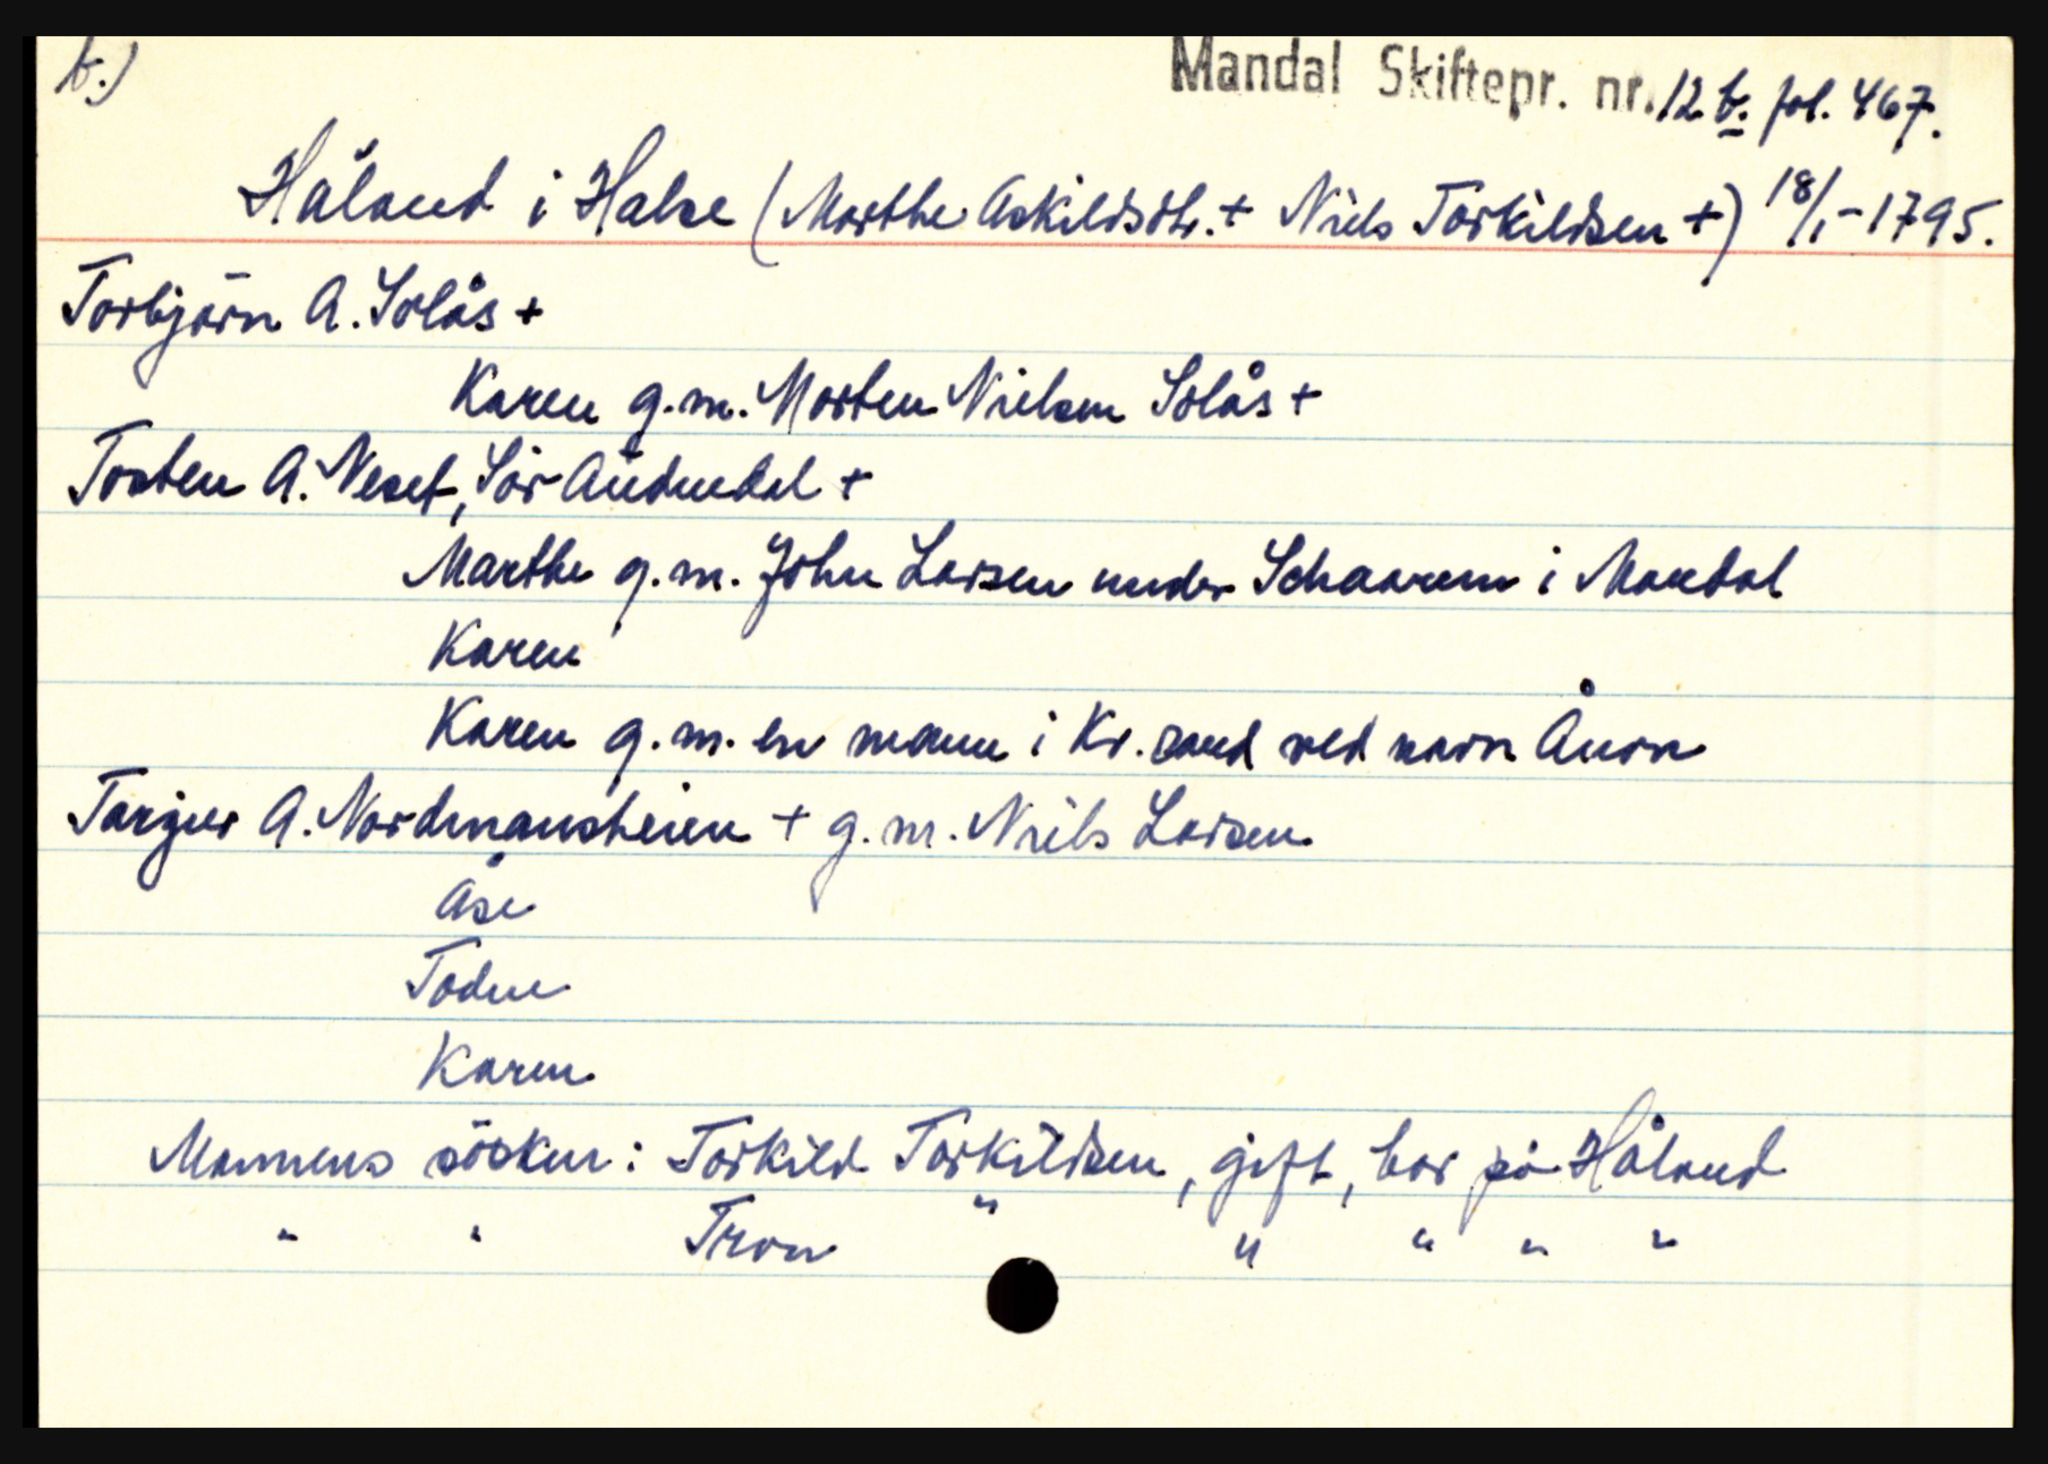 b.)
Mandal Skiftepr. nr. 12 b. fol. 467.
Håland i Halse (Marthe Askildsdtr. + Niels Torkildsen +) 18/1-1795.
Torbjørn A. Solås +
Karen g.m. Morten Nielsen Solås +
Tosten A. Neset, Sör Audnedal +
Marthe g.m. John Larsen under Schaaren i Mandal
Karen
Karen g.m. en mann i Kr.sand ved navn Ånon
Targier A. Nordmansheien + g.m. Niels Larsen
Åse
Todne
Karen
Mannens sösken: Torkild Torkildsen, gift, bor på Håland
" " Tron " " " " "